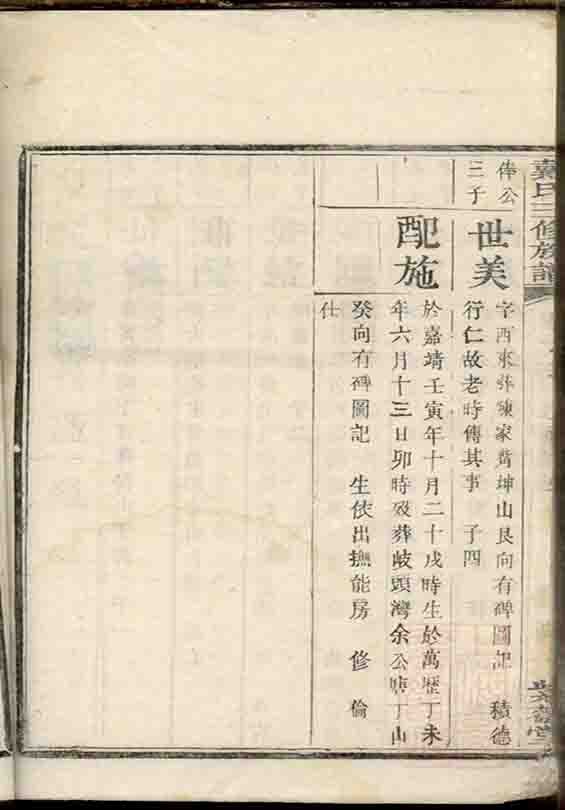 氏三修族譜
俸公
三子
世美
字西來葬陳家嵩坤山艮向有碑圖記　積德
行仁故老時傳其事　子四
配施
於嘉靖壬寅年十月二十戌時生於萬歷丁未
年六月十三日卯時歿葬歧頭灣余公塘丁山
癸向有碑圖記　生依出撫能房　修　倫
仕